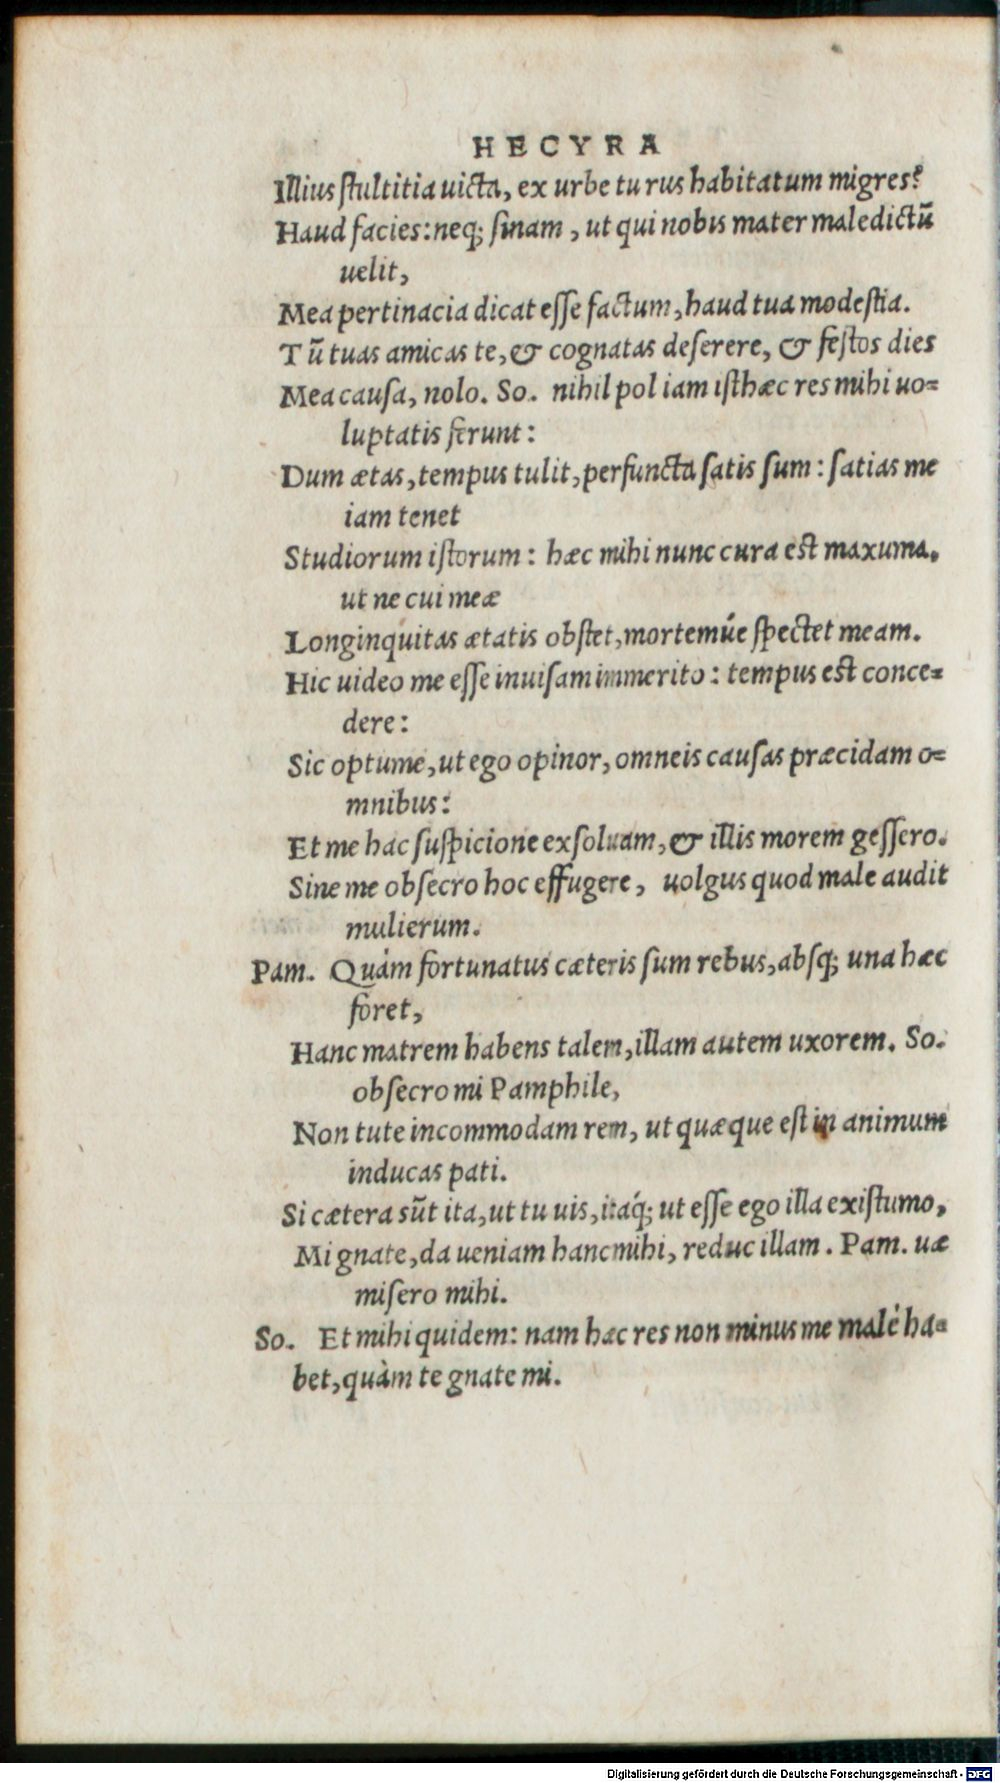 HECYRA
Illius ſtultitia uicta, ex urbe tu rus habitatum migres?
Haud facies: neq; ſinam, ut qui nobis mater maledictũ
uelit,
Mea pertinacia dicat eſſe factum, haud tua modeſtia.
Tũ tuas amicas te, & cognatas deſerere, & feſtos dies
Mea cauſa, nolo. So. nihil pol iam iſthæc res mihi uo=
luptatis ferunt:
Dum ætas, tempus tulit, perfuncta ſatis ſum: ſatias me
iam tenet
Studiorum iſtorum: hæc mihi nunc cura eſt maxuma,
ut ne cui meæ
Longinquitas ætatis obſtet, mortemúe ſpectet meam.
Hic uideo me eſſe inuiſam immerito: tempus eſt conce=
dere:
Sic optume, ut ego opinor, omneis cauſas præcidam o=
mnibus:
Et me hac ſuſpicione exſoluam, & illis morem geſſero.
Sine me obſecro hoc effugere, uolgus quod male audit
mulierum.
Pam. Quàm fortunatus cæteris ſum rebus, abſq; una hæc
foret,
Hanc matrem habens talem, illam autem uxorem. So.
obſecro mi Pamphile,
Non tute incommodam rem, ut quæque eſt in animum
inducas pati.
Si cætera sũt ita, ut tu uis, itaq́; ut eſſe ego illa exiſtumo,
Mi gnate, da ueniam hanc mihi, reduc illam. Pam. uæ
miſero mihi.
So. Et mihi quidem: nam hæc res non minus me malè ha=
bet, quàm te gnate mi.
Digitalisierung gefördert durch die Deutsche Forschungsgemeinschaft - DFG